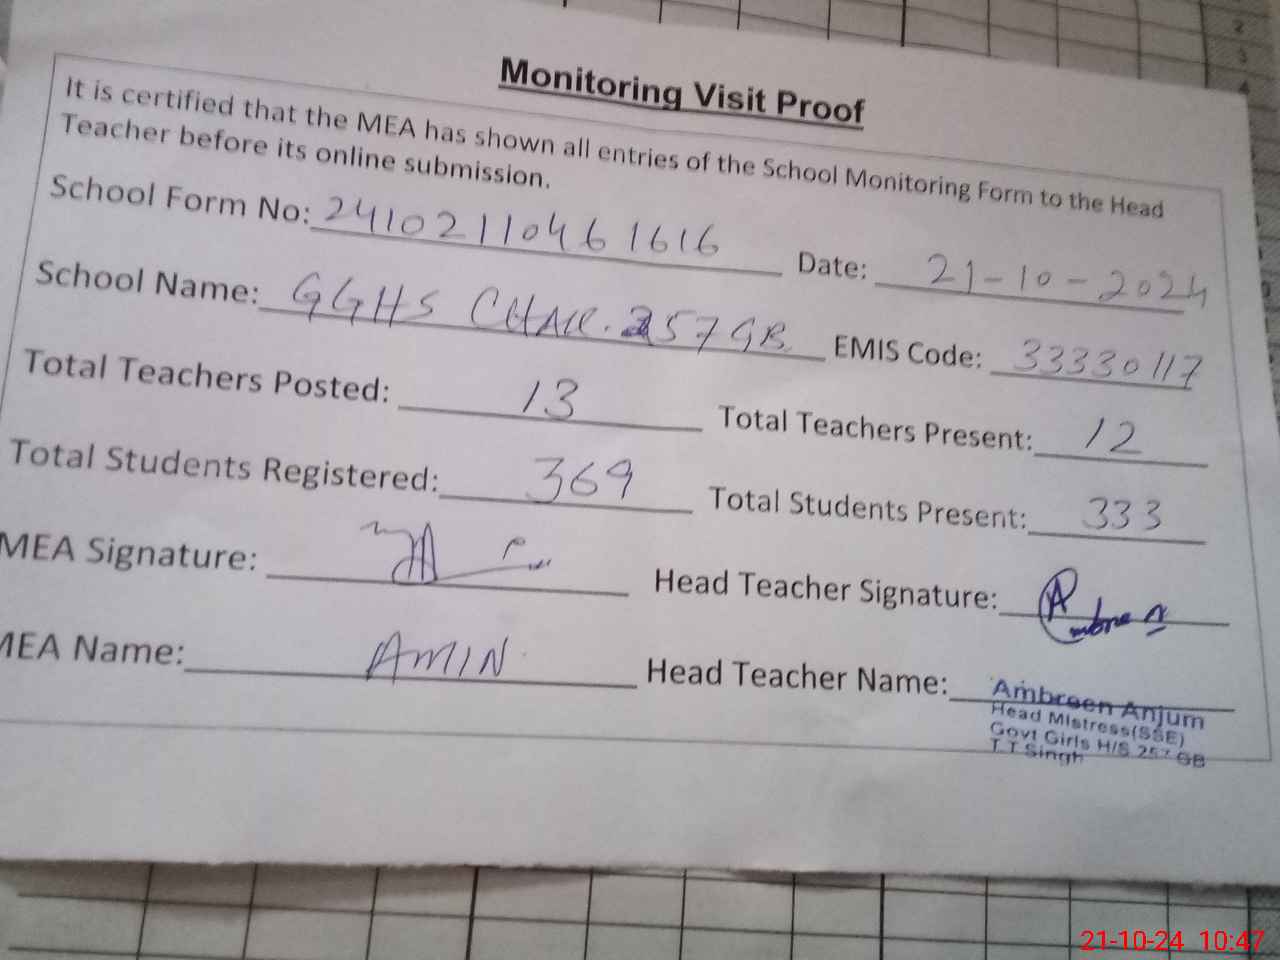 Monitoring Visit Proof
It is certified that the MEA has shown all entries of the School Monitoring Form to the Head
Teacher before its online submission.
School Form No: 24102110461616 Date: 21-10-2024
School Name: GGHS CHAK. 257 GB EMIS Code: 33330117
Total Teachers Posted: 13 Total Teachers Present: 12
Total Students Registered: 369 Total Students Present: 333
MEA Signature: Head Teacher Signature:
MEA Name: AMIN Head Teacher Name: Ambreen Anjum
Head Mistress(SSE)
Govt Girls H/S 257 GB
T T Singh
21-10-24 10:47